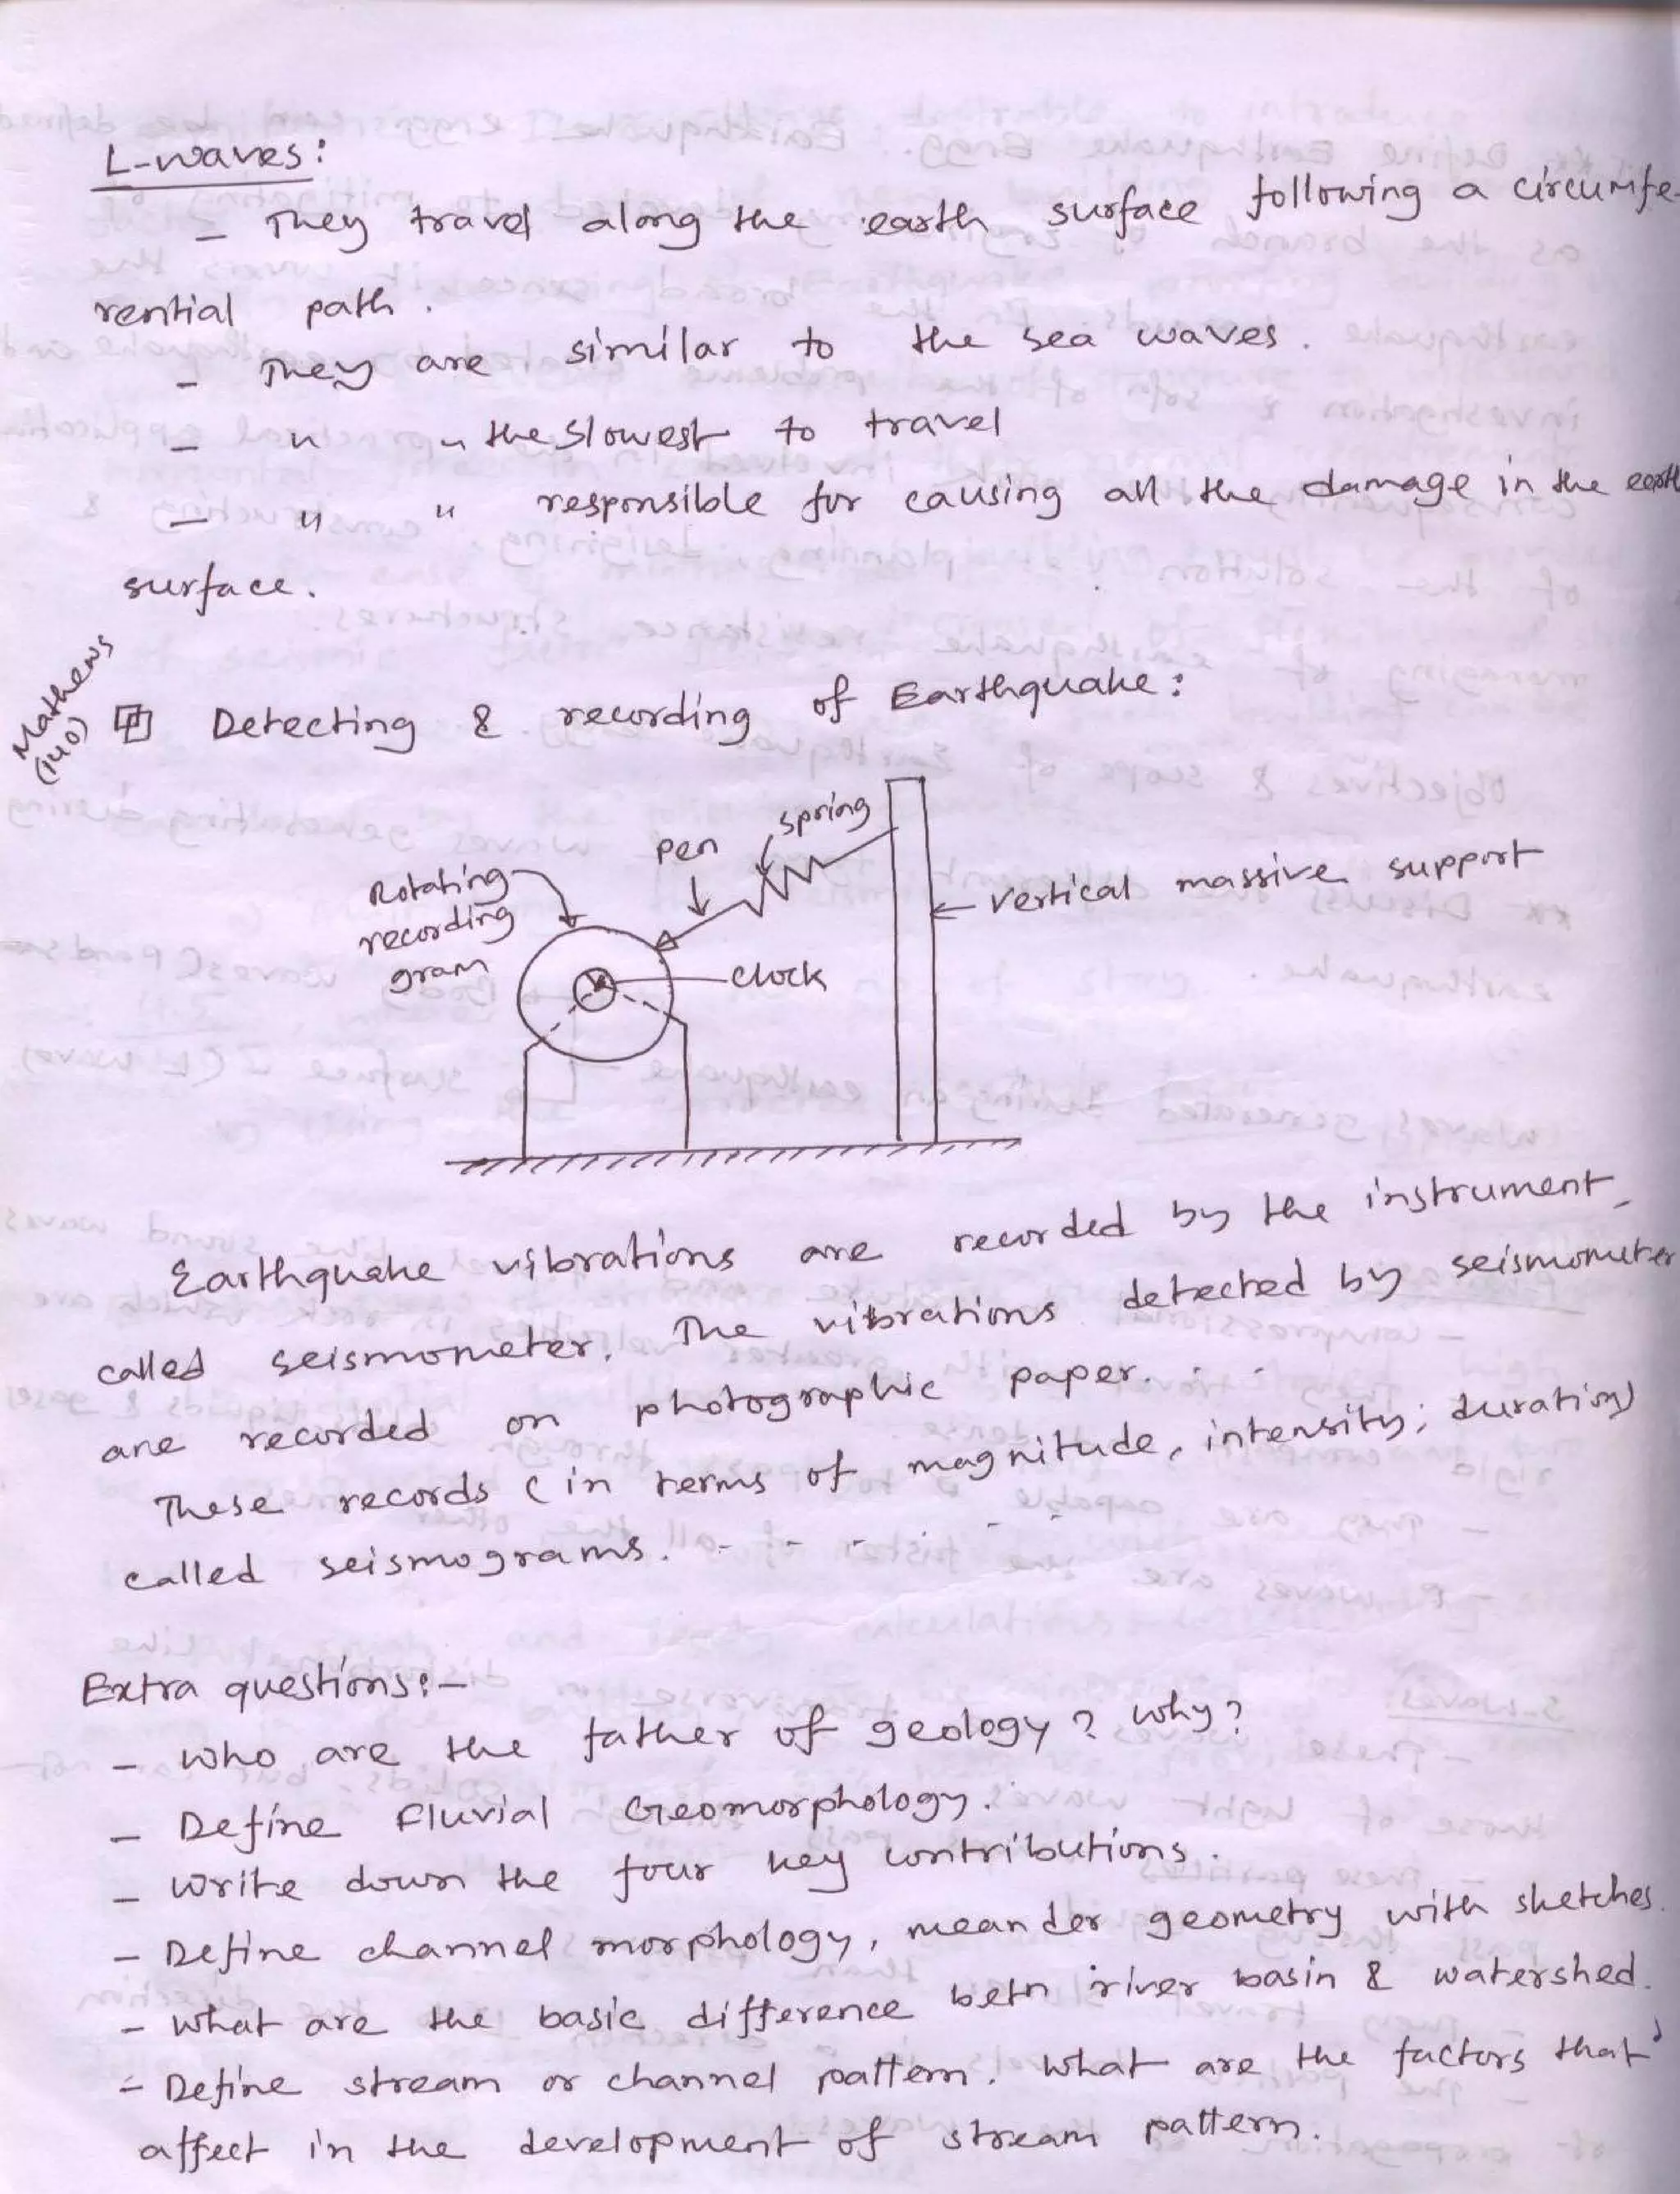 L-waves:
- They travel along the earth surface following a circumfe-
rential path.
- They are similar to the sea waves.
- " " the slowest to travel
- " " responsible for causing all the damage in the earth
surface.
Mathews
(140)
Detecting & recording of Earthquake:
spring
pen
Rotating
recording
gram
Vertical massive support
clock
Earthquake vibrations are recorded by the instrument
called seismometer. The vibrations detected by seismometer
are recorded on photographic paper. . .
These records (in terms of magnitude, intensity, duration)
called seismograms. - - - - -
Extra questions:-
- Who are the father of geology? why?
- Define Fluvial Geomorphology.
- Write down the four key contributions.
- Define channel morphology, meander geometry with sketches.
- What are the basic difference betn river basin & watershed.
- Define stream or channel pattern. What are the factors that
affect in the development of stream pattern.